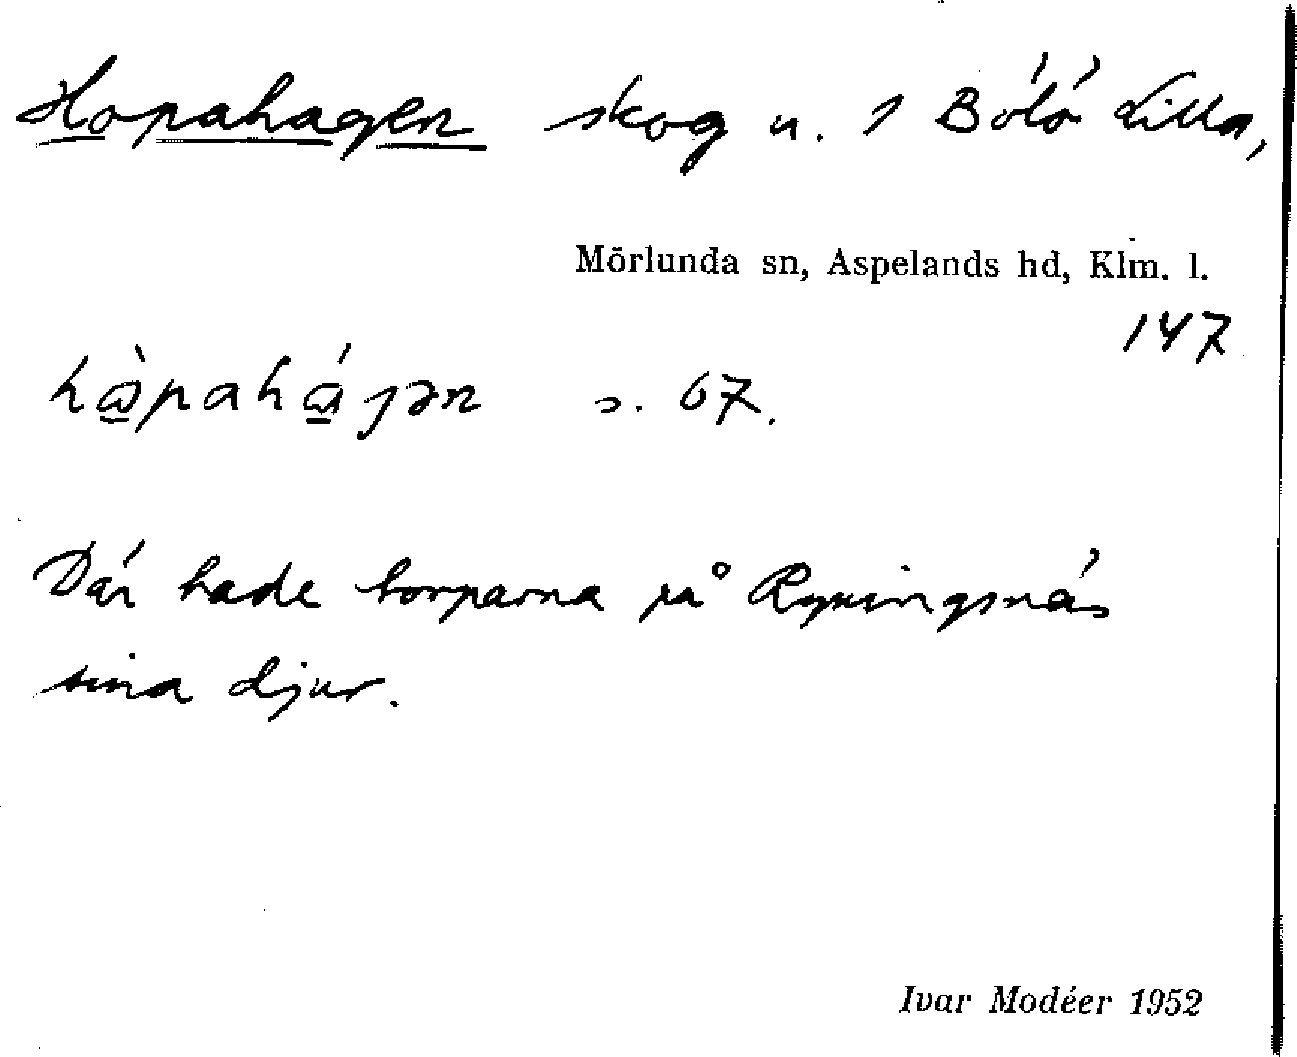 Hopahagen skog u. 1 Bölö Lilla,
Mörlunda sn, Aspelands hd, Klm. l.
147
s. 67.
Där hade torparna på Ryningsnäs
sina djur.
Ivar Modéer 1952